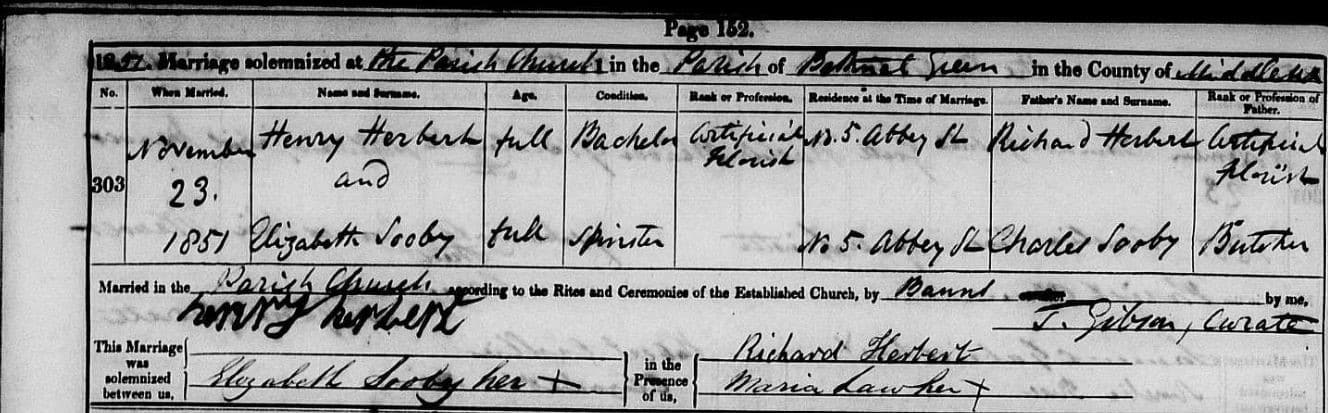 Page 152.
1851. Marriage solemnized at the Parish Church in the Parish of Bethnal Green in the County of Middlesex
No. When Married. Name and Surname. Age. Condition. Rank or Profession. Residence at the Time of Marriage. Father's Name and Surname. Rank or Profession of Father.
303 November 23. 1851 Henry Herbert full Bachelor Artificial Florist No. 5. Abbey St Richard Herbert Artificial Florist
and
Elizabeth Sooby full Spinster No 5. Abbey St Charles Sooby Butcher
Married in the Parish Church according to the Rites and Ceremonies of the Established Church, by Banns by me,
henry herbert J. Gibson, Curate
This Marriage was solemnized between us, Elizabeth Sooby her + in the Presence of us, Richard Herbert
Maria Law her +